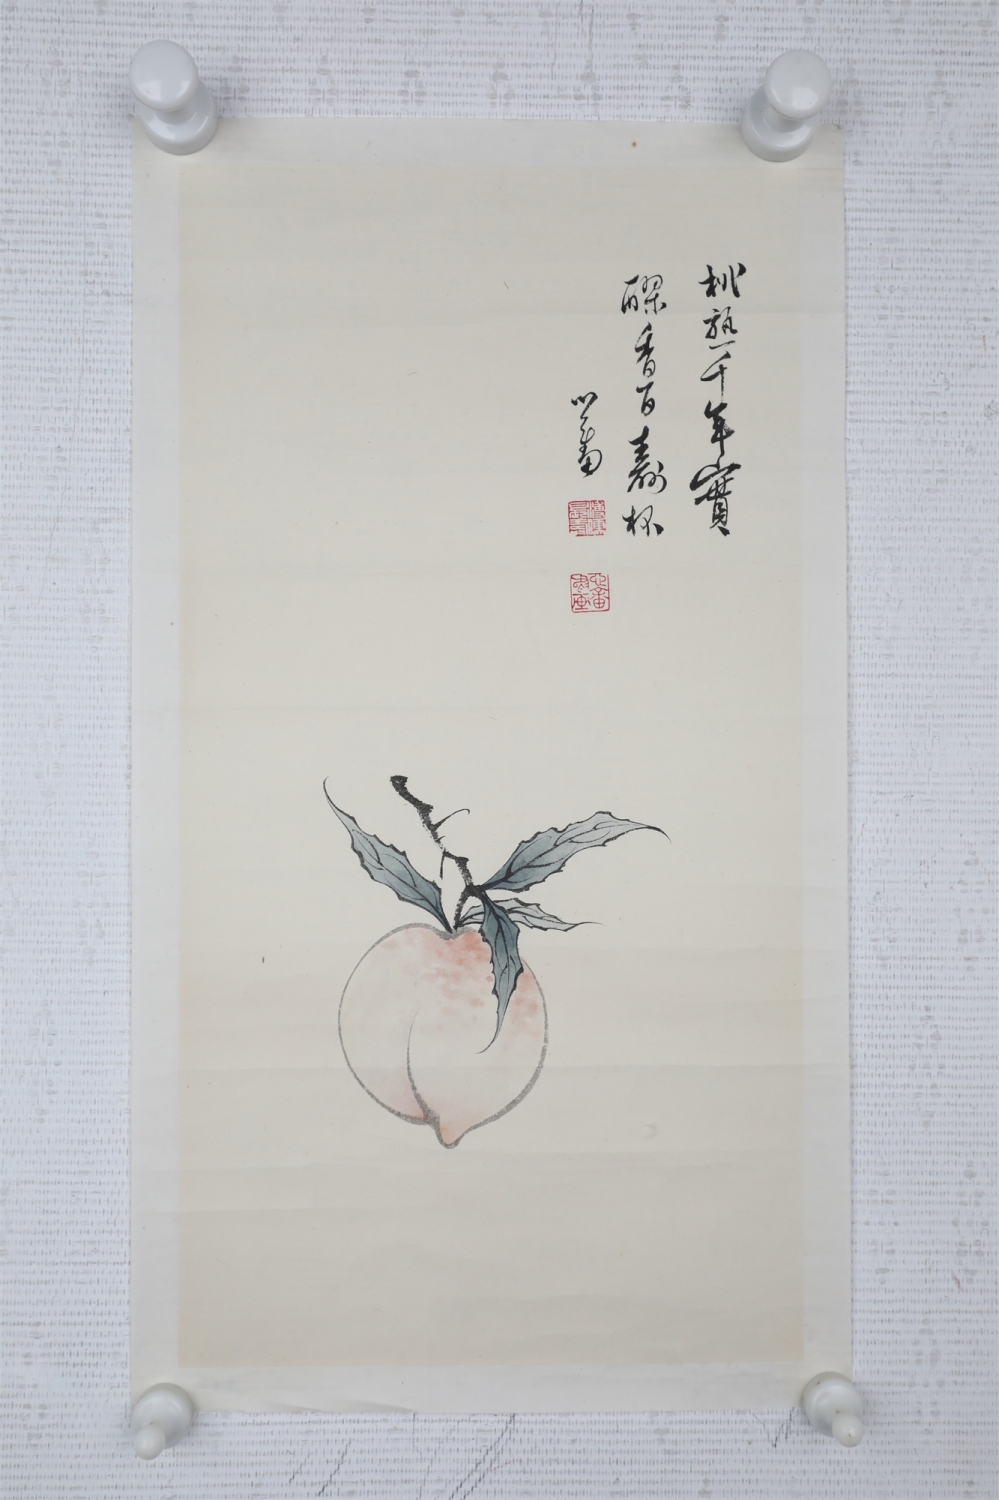 桃熟千年實
醪香百壽杯
心畬